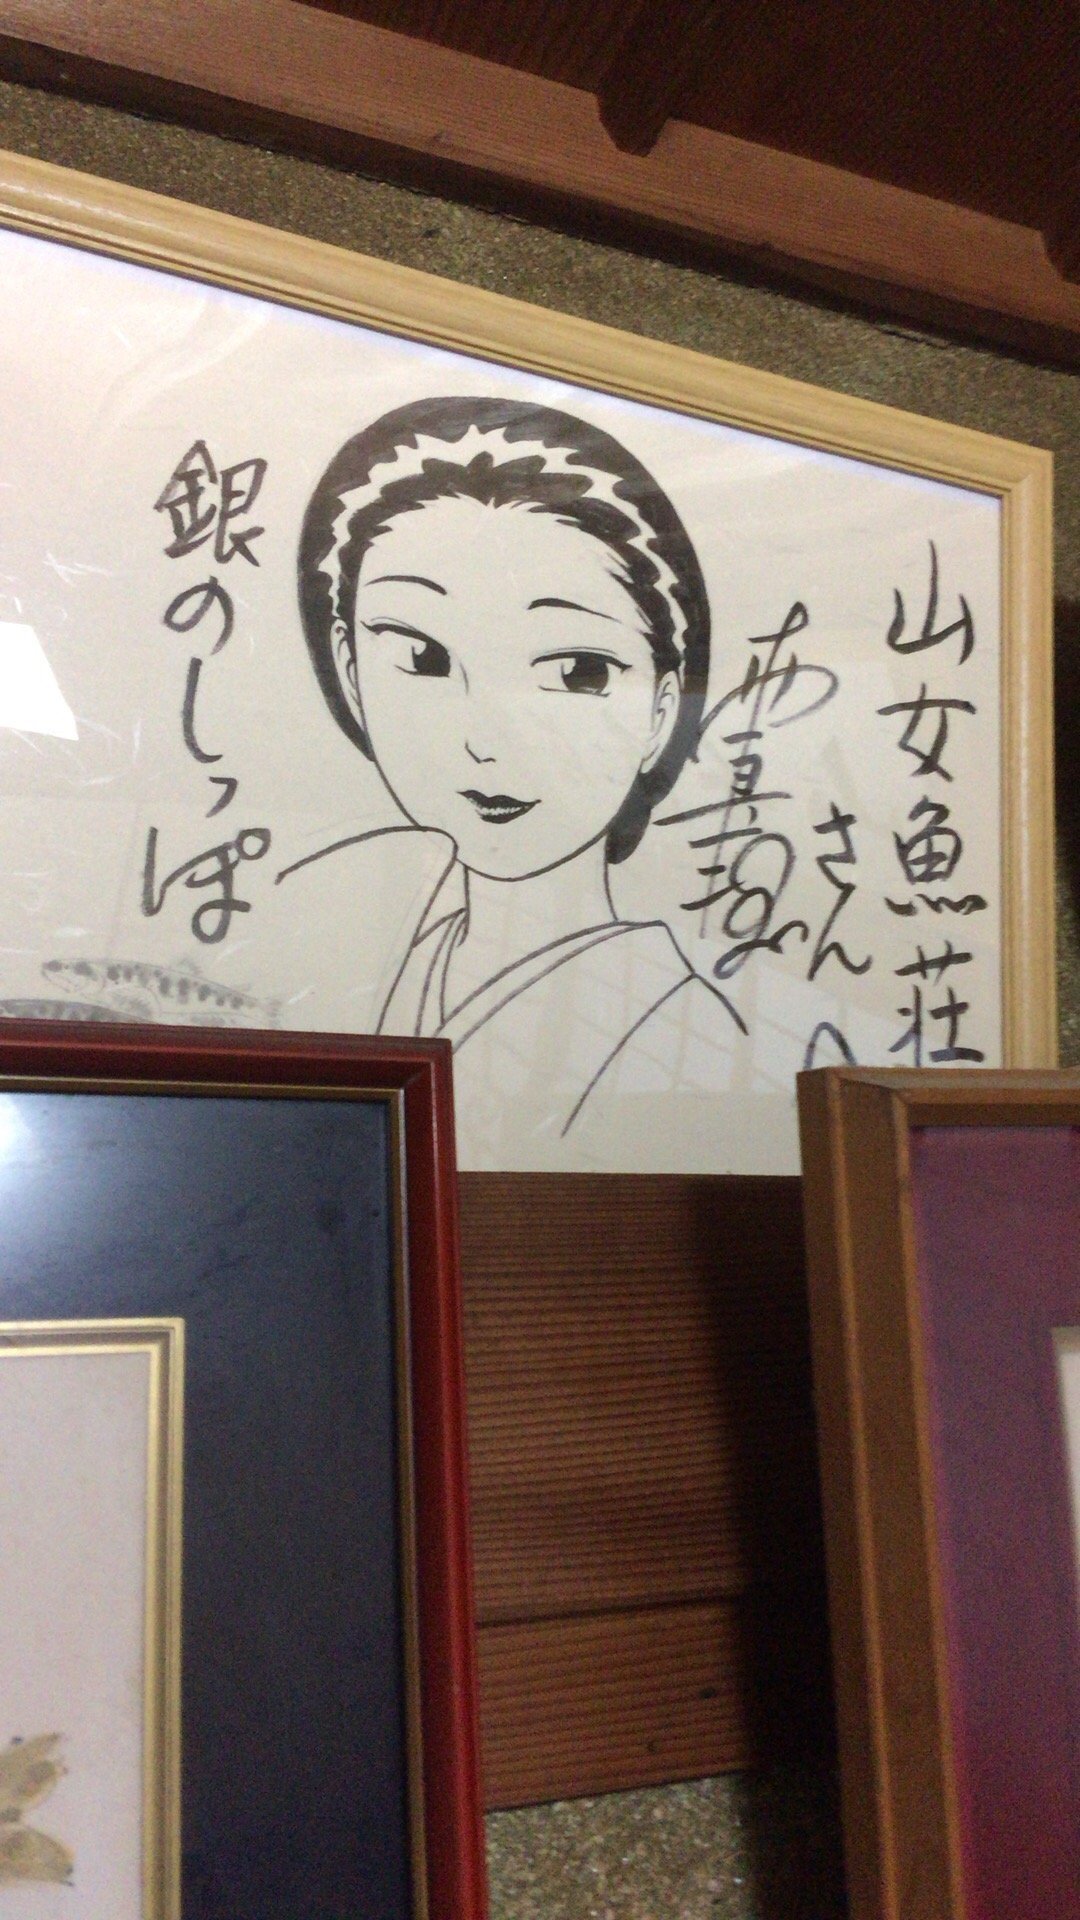 山女魚荘
さん
へ
銀のしっぽ